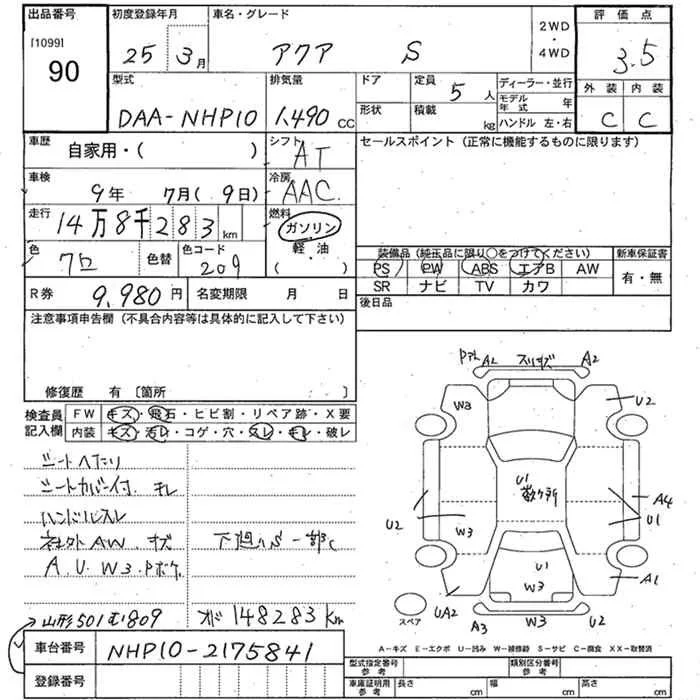 出品番号
[1099]
90
初度登録年月
25 3月
車名・グレード
アクア S
2WD
・
4WD
評価点
3.5
外装 内装
C C
型式
DAA-NHP10
排気量
1,490 CC
ドア
形状
定員 5 人
積載 kg
ディーラー・並行
モデル年式 年
ハンドル 左・右
車歴
自家用・( )
シフト
AT
セールスポイント (正常に機能するものに限ります)
車検
9年 7月( 9日)
冷房
AAC
走行
14万8千283km
燃料
ガソリン
軽・油
( )
色
クロ
色替
色コード
209
装備品 (純正品に限り○をつけてください)
PS PW ABS エアB AW
SR ナビ TV カワ
新車保証書
有・無
R券 9,980円
名変期限 月 日
後日品
注意事項申告欄 (不具合内容等は具体的に記入して下さい)
修復歴 有 〔箇所 〕
検査員記入欄
FW キズ・飛石・ヒビ割・リペア跡・X要
内装 キズ・汚レ・コゲ・穴・スレ・キレ・破レ
シートヘタリ
シートカバー付 キレ
ハンドルスレ
社外AW.キズ
下廻りS一部C
A.U.W3.Pボケ
→山形501む809
オド148283Km
車台番号
NHP10-2175841
登録番号
A2 スリキズ A2
W3
U2
U1
A4
U2
W3
U1
U1
W3
A1
UA2
A3
W3
U2
スペア
A-キズ E-エクボ U-凹み W-補修跡 S-サビ C-腐食 XX-取替済
型式指定番号
類別区分番号
車庫証明用参考
長さ cm
幅 cm
高さ cm